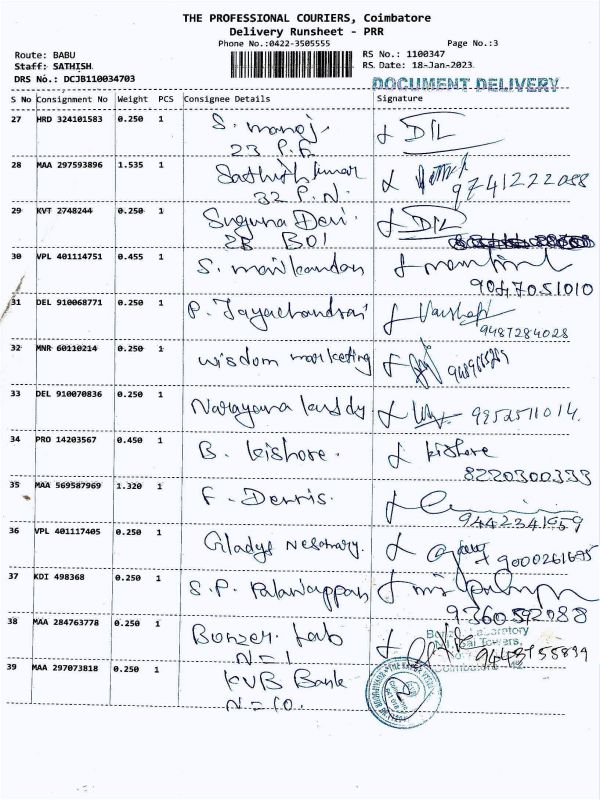 THE PROFESSIONAL COURIERS, Coimbatore
Delivery Runsheet - PRR
Phone No.:0422-3505555 Page No.:3
Route: BABU RS No.: 1100347
Staff: SATHISH RS Date: 18-Jan-2023
DRS No.: DCJB110034703
DOCUMENT DELIVERY
S No Consignment No Weight PCS Consignee Details Signature
27 HRD 324101583 0.250 1 S. manoj. DIL
23
28 MAA 297593896 1.535 1 Sathish kumar 9741222088
32 P.N.
29 KVT 2748244 0.250 1 Suguna Devi DIL
30 VPL 401114751 0.455 1 S. manikandan
9047051010
31 DEL 910068771 0.250 1 P. Jayachandran
9487284028
32 MNR 60110214 0.250 1 wisdom marketing
33 DEL 910070836 0.250 1 Narayana 9952511014.
34 PRO 14203567 0.450 1 B. kishore. kishore
8220300333
35 MAA 569587969 1.320 1 F. Dennis.
9442341959
36 VPL 401117405 0.250 1 Gladys
9000261695
37 KDI 498368 0.250 1 S.P. Palaniappan
38 MAA 284763778 0.250 1 Bonzer Lab
N=1
39 MAA 297073818 0.250 1 KVB Bank
N=10.